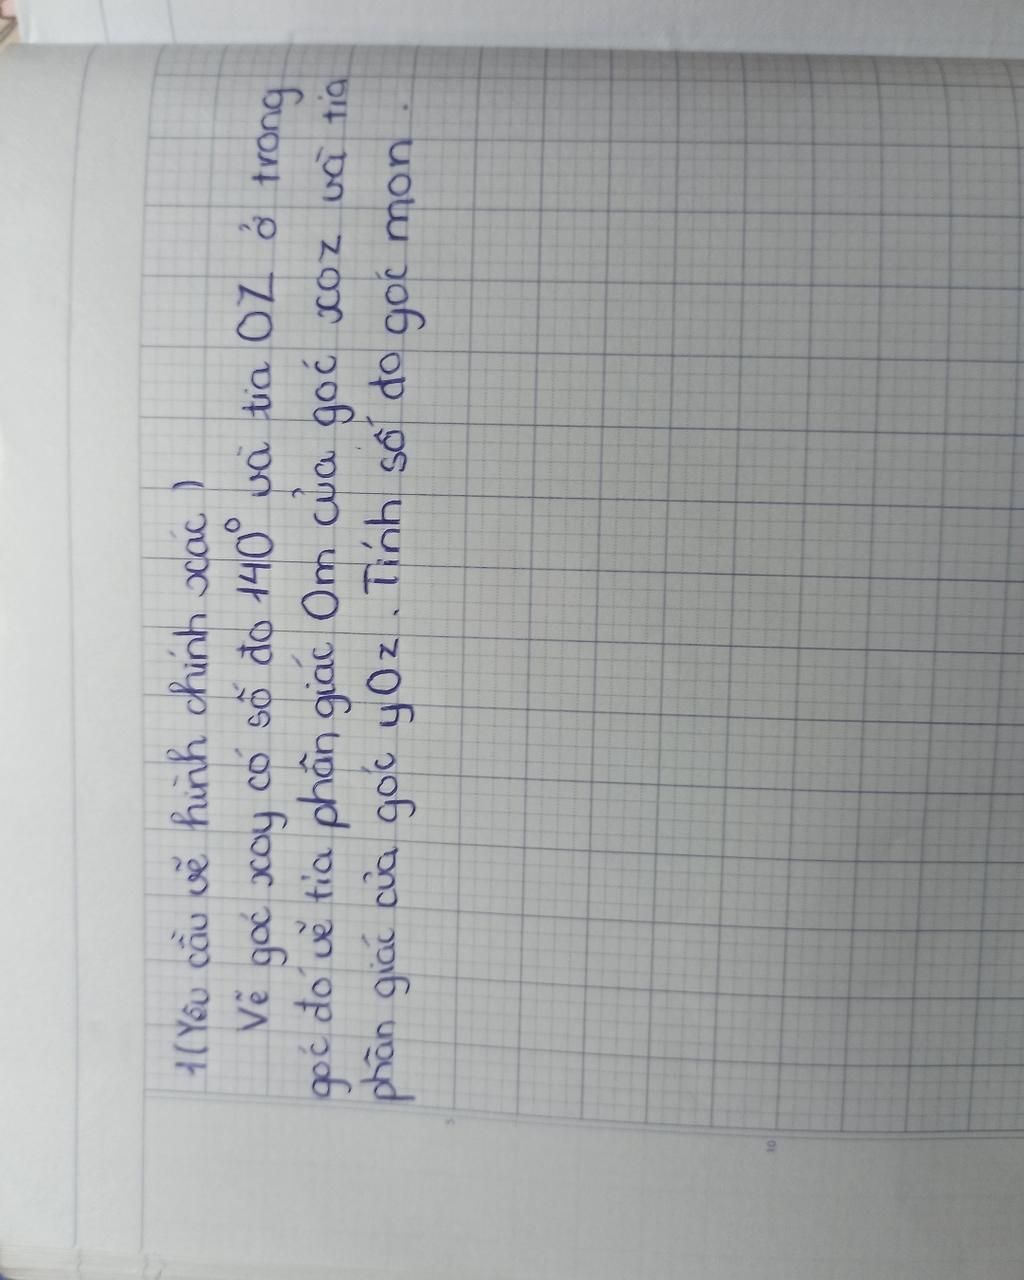 1(Yêu cầu vẽ hình chính xác)
Vẽ góc xoy có số đo 140° và tia OZ ở trong
góc đó vẽ tia phân giác Om của góc xoz và tia
phân giác của góc yOz. Tính số đo góc mon.
5
10